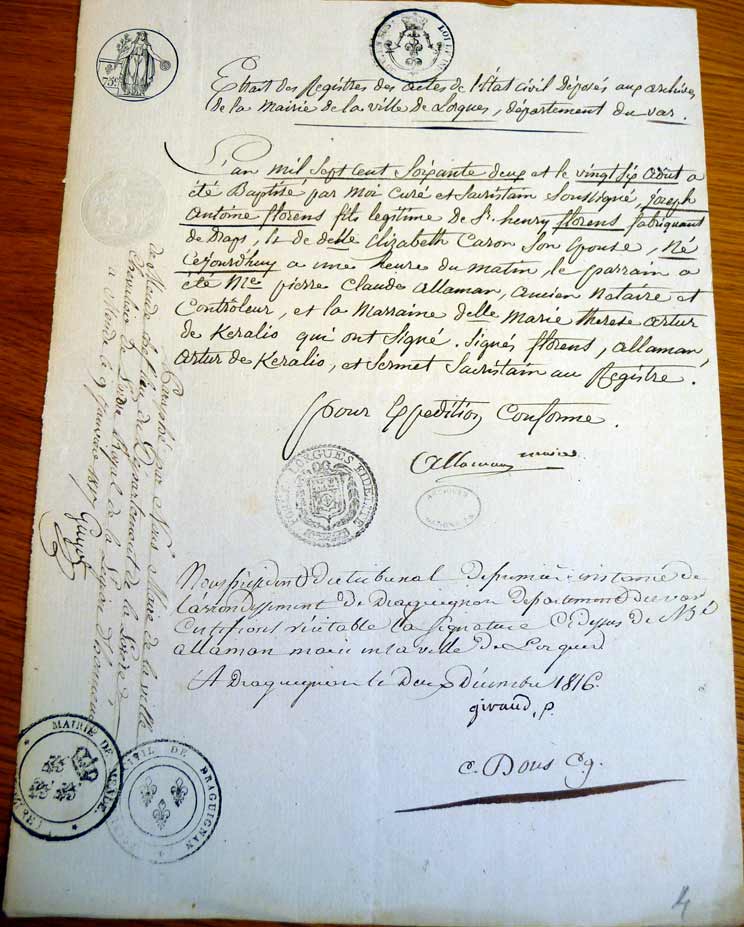 75c
Extrait des Registres des actes de l'Etat civil Déposés aux archives
de la Mairie de la ville de Lorgues, département du var.
L'an mil sept cent soixante deux et le vingt six août a
été Baptisé, par moi Curé et Sacristain soussigné, joseph
antoine florens fils legitime de Sr. henry florens fabriquant
de Draps, & de delle Elizabeth Caron son Epouse, Né
Cejourdhuy a une heure du matin, le parrain a
été Me. pierre Claude allaman, ancien notaire et
Contrôleur, et la Marraine delle Marie therese artur
de Keralio qui ont signé. Signés florens, allaman,
artur de Keralio, et Sermet Sacristain au Registre.
pour Expedition Conforme.
allaman maire
LORGUES FIDELLE
ARCHIVES
NATIONALES
Nous président du tribunal de premiere instance de
l'arrondissement de Draguignan departement du var
Certifions véritable la signature Ci dessus de Mr
allaman maire de la ville de Lorgues
A Draguignan le Deux Décembre 1816.
giraud, p.
C. Bous Cg.
par Nous Maire de la ville
de Mende chef lieu de Département de la Lozère
de l'ordre Royal de la Légion d'honneur
a Mende le 9 janvier 1817
MAIRIE DE MENDE. (LOZÈRE)
CIVIL DE DRAGUIGNAN
4